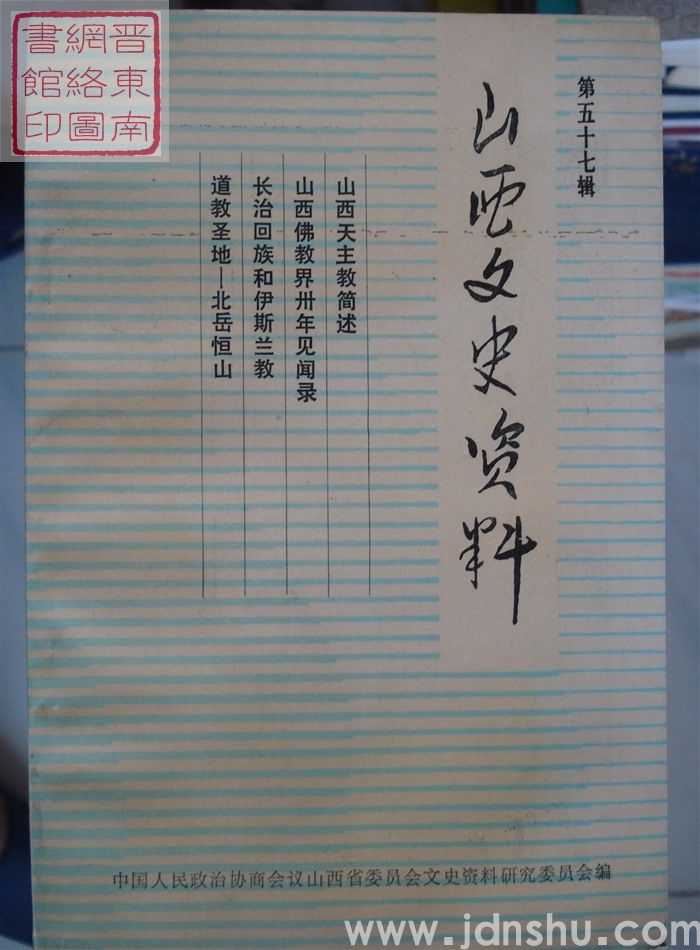 晋東南
網絡圖
書館印
第五十七辑
山西文史资料
山西天主教简述
山西佛教界卅年见闻录
长治回族和伊斯兰教
道教圣地—北岳恒山
中国人民政治协商会议山西省委员会文史资料研究委员会编
www.jdnshu.com